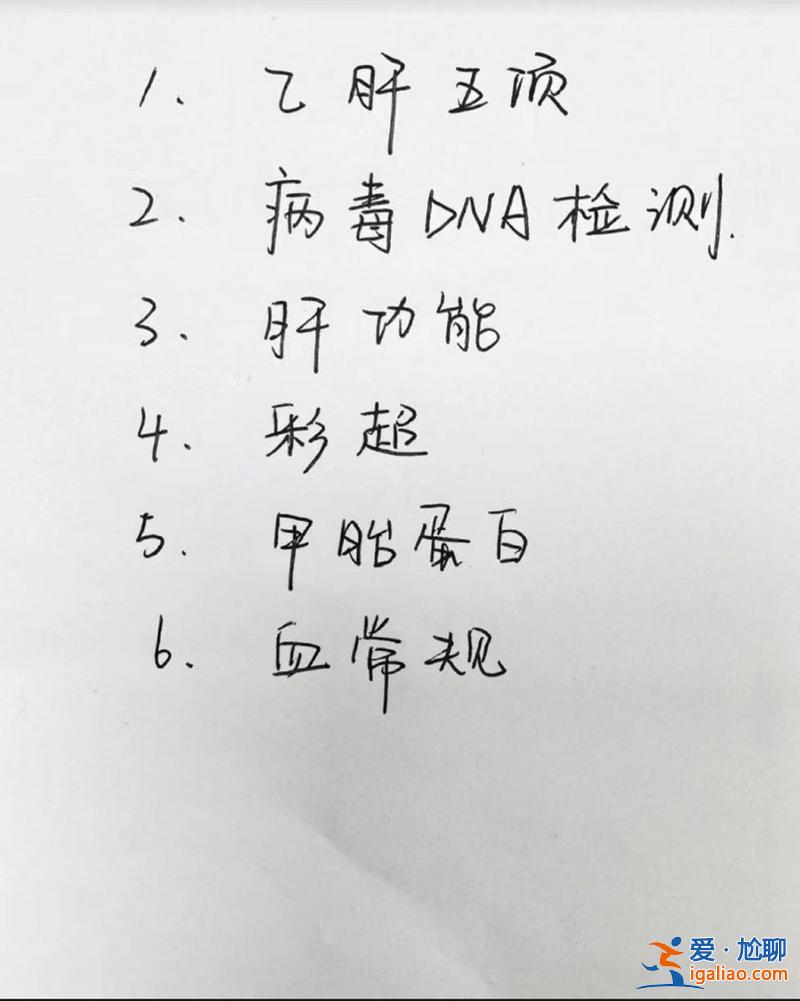 1. 乙肝五项
2. 病毒DNA检测.
3. 肝功能
4. 彩超
5. 甲胎蛋白
6. 血常规
爱·尬聊
igaliao.com